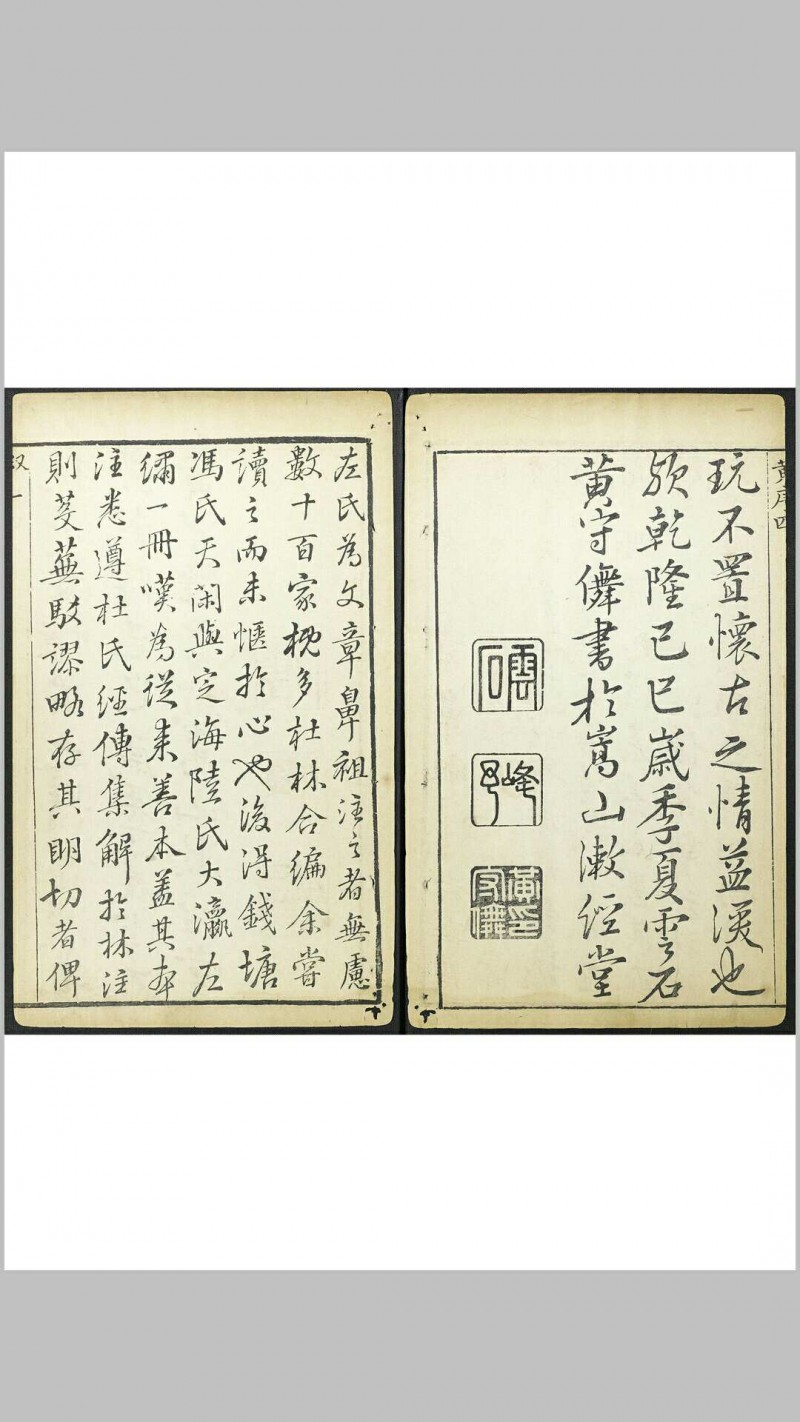 黄序四
玩不置懷古之情益深也
欤乾隆己巳歲季夏雲石
黄守儛書於嵩山漱經堂
雲石
峰
黄守儛印
左氏為文章鼻祖注之者無慮
數十百家概多杜林合编余嘗
讀之而未愜於心也後得錢塘
馮氏天閑與定海陸氏大瀛左
繡一冊嘆為從来善本盖其夲
注悉遵杜氏經傳集解於林注
則芟蕪駁謬略存其明切者俾
叙一